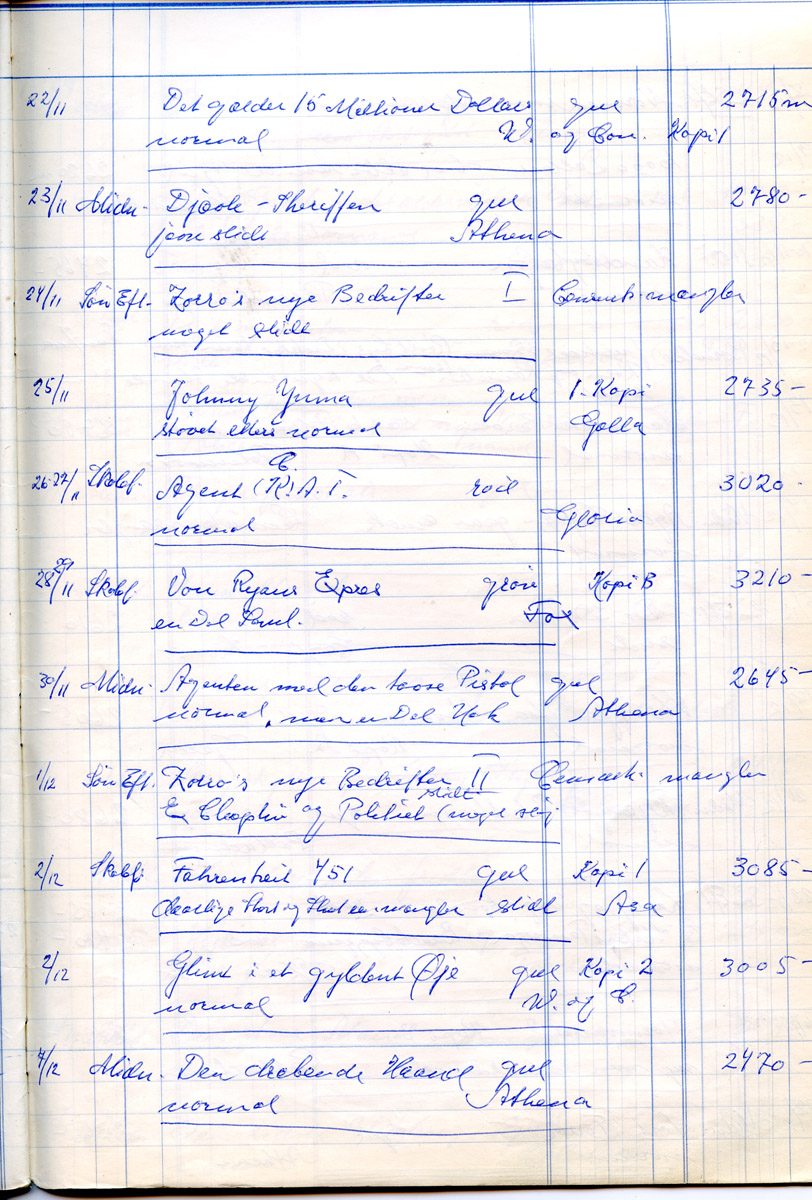 22/11 Det gælder 15 Millioner Dollars gul 2715 m
normal W. og Con. Kopi 1
23/11 Midn. Djæole-Sheriffen gul 2780-
jævn slidt Athena
24/11 Søn Eft. Zorro's nye Bedrifter I Censurk. mangler
noget slidt
25/11 Johnny Yuma gul 1. Kopi 2735-
støvet ellers normal Golla
C.
26-27/11 Skolef. Agent (K)A.T. rød 3020-
normal Gloria
28/29/11 Skolef. Von Ryans Expres grøn Kopi B 3210-
en Del Saml. Fox
30/11 Midn. Agenten med den tavse Pistol gul 2645-
normal, men en Del Hak Athena
1/12 Søn Eft. Zorro's nye Bedrifter II Censurk. mangler
En Chaplin og Politiet (noget slidt støj
2/12 Skolef. Fahrenheit 451 gul Kopi 1 3085-
daarlige Start og Slut en mangler slidt Asa
2/12 Glimt i et gyldent Øje gul Kopi 2 3005-
normal W. og C.
7/12 Midn. Den dræbende Haand gul 2470-
normal Athena